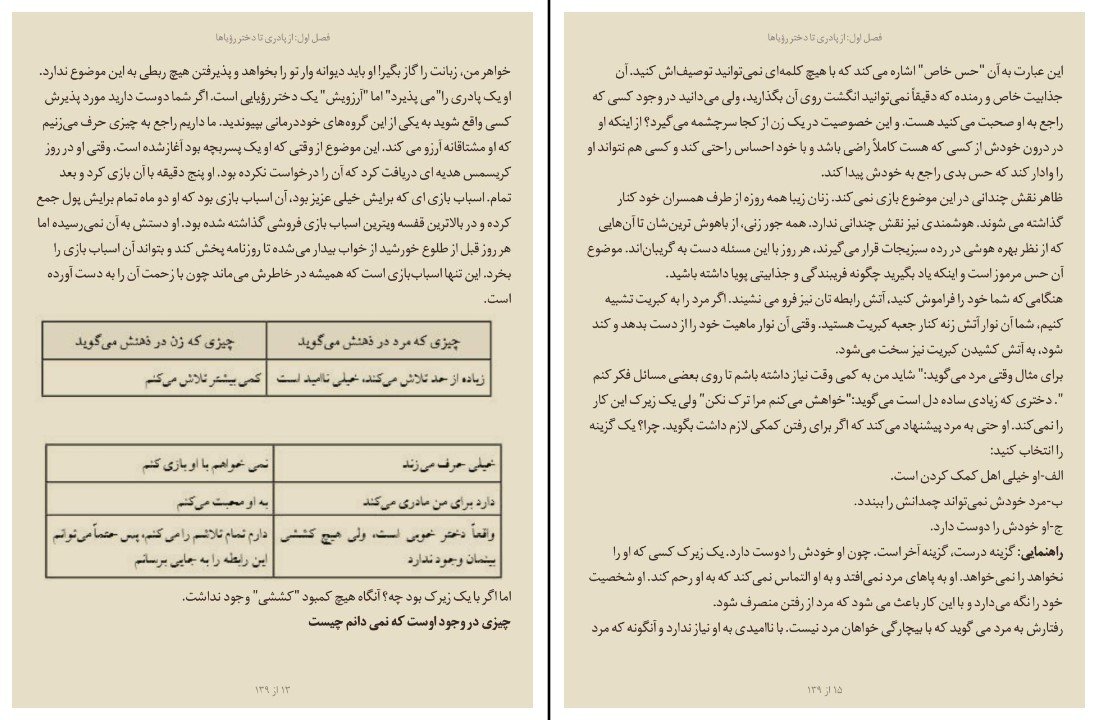 فصل اول: از پادری تا دختر رؤیاها
خواهر من، زبانت را گاز بگیر! او باید دیوانه وار تو را بخواهد و پذیرفتن هیچ ربطی به این موضوع ندارد.
او یک پادری را"می پذیرد" اما "آرزویش" یک دختر رؤیایی است. اگر شما دوست دارید مورد پذیرش
کسی واقع شوید به یکی از این گروه‌های خوددرمانی بپیوندید. ما داریم راجع به چیزی حرف می‌زنیم
که او مشتاقانه آرزو می کند. این موضوع از وقتی که او یک پسربچه بود آغازشده است. وقتی او در روز
کریسمس هدیه ای دریافت کرد که آن را درخواست نکرده بود. او پنج دقیقه با آن بازی کرد و بعد
تمام. اسباب بازی ای که برایش خیلی عزیز بود، آن اسباب بازی بود که او دو ماه تمام برایش پول جمع
کرده و در بالاترین قفسه ویترین اسباب بازی فروشی گذاشته شده بود. او دستش به آن نمی‌رسیده اما
هر روز قبل از طلوع خورشید از خواب بیدار می‌شده تا روزنامه پخش کند و بتواند آن اسباب بازی را
بخرد. این تنها اسباب‌بازی است که همیشه در خاطرش می‌ماند چون با زحمت آن را به دست آورده
است.
چیزی که مرد در ذهنش می‌گوید چیزی که زن در ذهنش می‌گوید
زیاده از حد تلاش می‌کند، خیلی ناامید است کمی بیشتر تلاش می‌کنم
خیلی حرف می‌زند نمی خواهم با او بازی کنم
دارد برای من مادری می‌کند به او محبت می‌کنم
واقعاً دختر خوبی است، ولی هیچ کششی دارم تمام تلاشم را می‌کنم، پس حتماً می‌توانم
بینمان وجود ندارد این رابطه را به جایی برسانم
اما اگر با یک زیرک بود چه؟ آنگاه هیچ کمبود "کششی" وجود نداشت.
چیزی در وجود اوست که نمی دانم چیست
۱۳ از ۱۳۹
فصل اول: از پادری تا دختر رؤیاها
این عبارت به آن "حس خاص" اشاره می‌کند که با هیچ کلمه‌ای نمی‌توانید توصیف‌اش کنید. آن
جذابیت خاص و رمنده که دقیقاً نمی‌توانید انگشت روی آن بگذارید، ولی می‌دانید در وجود کسی که
راجع به او صحبت می‌کنید هست. و این خصوصیت در یک زن از کجا سرچشمه می‌گیرد؟ از اینکه او
در درون خودش از کسی که هست کاملاً راضی باشد و با خود احساس راحتی کند و کسی هم نتواند او
را وادار کند که حس بدی راجع به خودش پیدا کند.
ظاهر نقش چندانی در این موضوع بازی نمی‌کند. زنان زیبا همه روزه از طرف همسران خود کنار
گذاشته می شوند. هوشمندی نیز نقش چندانی ندارد. همه جور زنی، از باهوش ترین‌شان تا آن‌هایی
که از نظر بهره هوشی در رده سبزیجات قرار می‌گیرند، هر روز با این مسئله دست به گریبان‌اند. موضوع
آن حس مرموز است و اینکه یاد بگیرید چگونه فریبندگی و جذابیتی پویا داشته باشید.
هنگامی‌که شما خود را فراموش کنید، آتش رابطه تان نیز فرو می نشیند. اگر مرد را به کبریت تشبیه
کنیم، شما آن نوار آتش زنه کنار جعبه کبریت هستید. وقتی آن نوار ماهیت خود را از دست بدهد و کند
شود، به آتش کشیدن کبریت نیز سخت می‌شود.
برای مثال وقتی مرد می‌گوید:" شاید من به کمی وقت نیاز داشته باشم تا روی بعضی مسائل فکر کنم
". دختری که زیادی ساده دل است می‌گوید:"خواهش می‌کنم مرا ترک نکن" ولی یک زیرک این کار
را نمی‌کند. او حتی به مرد پیشنهاد می‌کند که اگر برای رفتن کمکی لازم داشت بگوید. چرا؟ یک گزینه
را انتخاب کنید:
الف-او خیلی اهل کمک کردن است.
ب-مرد خودش نمی‌تواند چمدانش را ببندد.
ج-او خودش را دوست دارد.
راهنمایی: گزینه درست، گزینه آخر است. چون او خودش را دوست دارد. یک زیرک کسی که او را
نخواهد را نمی‌خواهد. او به پاهای مرد نمی‌افتد و به او التماس نمی‌کند که به او رحم کند. او شخصیت
خود را نگه می‌دارد و با این کار باعث می شود که مرد از رفتن منصرف شود.
رفتارش به مرد می گوید که با بیچارگی خواهان مرد نیست. با ناامیدی به او نیاز ندارد و آنگونه که مرد
۱۵ از ۱۳۹